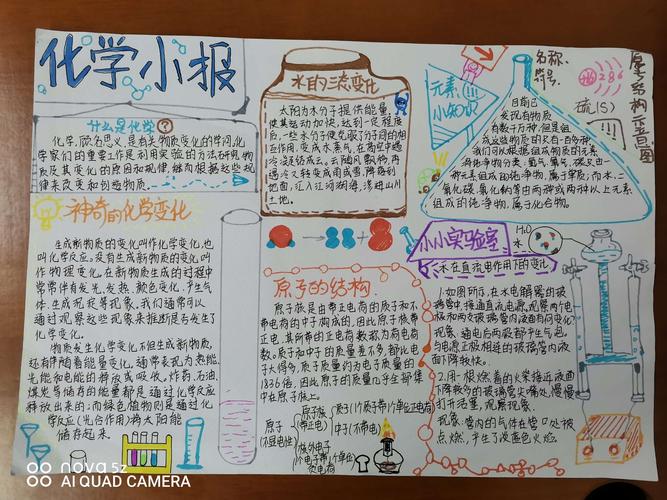 化学小报
什么是化学?
化学,顾名思义,是有关物质变化的学问,化
学家们的重要工作是利用实验的方法研究物
质及其变化的原因和规律,继而根据这些规
律来改变和创造物质。
神奇的化学变化
生成新物质的变化叫作化学变化,也
叫化学反应。没有生成新物质的变化叫
作物理变化。在新物质生成的过程中
常常伴有发光、发热、颜色变化、产生气
体、生成沉淀等现象,我们通常可以
通过观察这些现象来推断是否发生了
化学变化。
物质发生化学变化不但生成新物质,
还有伴随着能量变化,通常表现为热能、
光能和电能的释放或吸收。炸药、石油、
煤炭等储存的能量都是通过化学反应
释放出来的;而绿色植物则是通过化
学反应(光合作用)将太阳能
储存起来。
水的三态变化
太阳为水分子提供能量,
使其运动加快,达到一定程度
后,一些水分子便克服分子间的相
互作用,变成水蒸气,在高空中遇
冷凝结成云。云随风飘物,再
遇冷又转变成雨或雪,降落到
地面,汇入江河湖海,浸进山川
土地。
原子的结构
原子核是由带正电荷的质子和不
带电荷的中子构成的,因此原子核带
正电,其所带的正电荷数称为核电荷
数。质子和中子的质量差不多,都比电
子大得多,质子质量约为电子质量的
1836倍,因此原子的质量几乎全部集
中在原子核上。
原子
(不显电性)
原子核
(带正电)
质子(1个质子带1个单位正电荷)
中子(不带电)
核外电子
(1个电子带1个单位
负电荷)
元素
小知识
名称:
符号:
目前已
发现有物质
有数千万种,但是组
成这些物质的只有一百多种
我们可以根据组成物质的元素
将纯净物分类:氢气、氧气、碳是由一
种元素组成的纯净物,属于单质;而水、二
氧化碳、氧化钠等由两种或两种以上元素
组成的纯净物,属于化合物。
原子结构示意图
286
硫(S)
小小实验室
H₂O
水
水在直流电作用下的变化
1.如图所示,在水电解器的玻
璃管中接通直流电源,观察两个电
极和两支玻璃管内液面有何变化
现象:通电后两极都产生气泡,
与电源正极相连的玻璃管内液
面下降较快。
2.用一根燃着的火柴接近液面
下降较多的玻璃管尖嘴处,慢慢
打开活塞,观察现象。
现象:管内的气体在管口处被
点燃,产生了淡蓝色火焰。
nova 5z
AI QUAD CAMERA